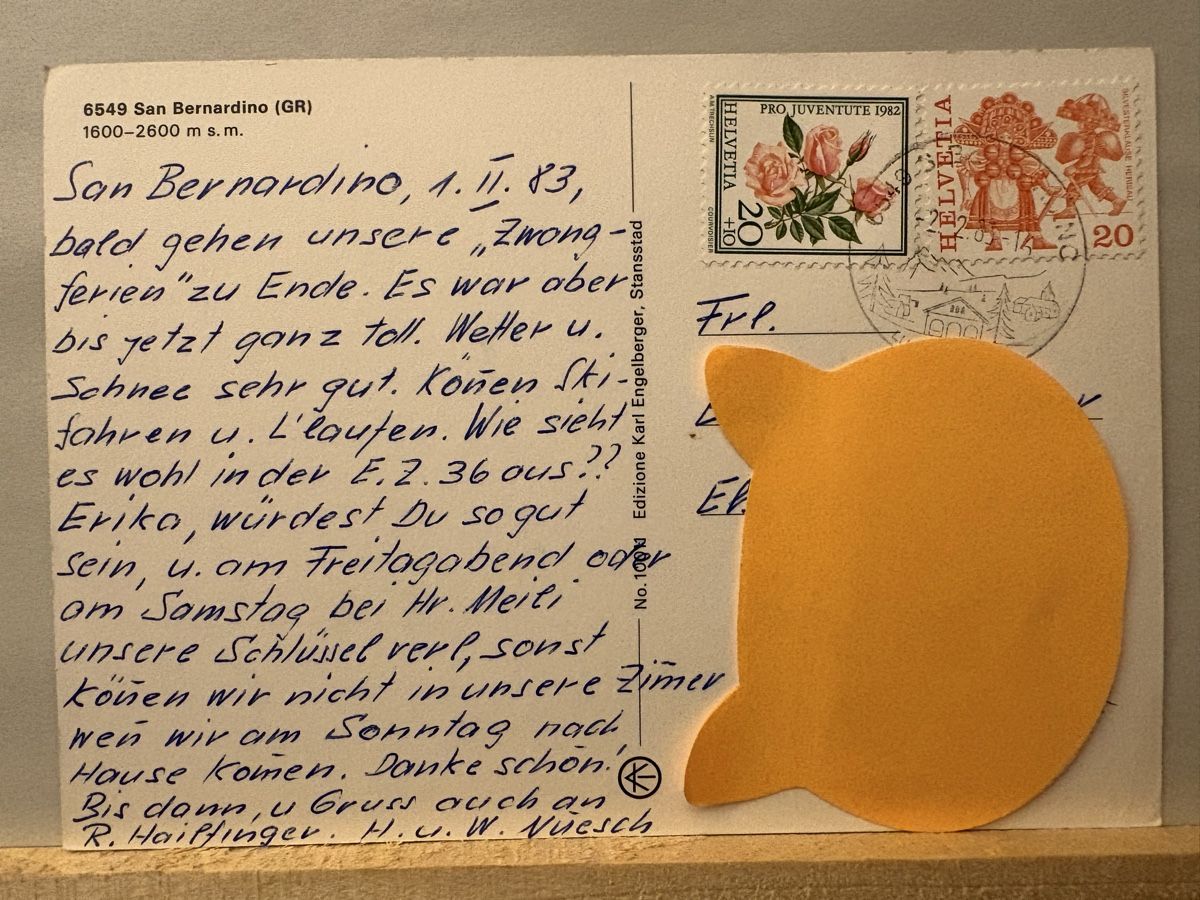 6549 San Bernardino (GR)
1600–2600 m s.m.
San Bernardino, 1. II. 83,
bald gehen unsere „Zwang-
ferien" zu Ende. Es war aber
bis jetzt ganz toll. Wetter u.
Schnee sehr gut. Köñen Ski-
fahren u. L'laufen. Wie sieht
es wohl in der E.Z. 36 aus??
Erika, würdest Du so gut
sein, u. am Freitagabend oder
am Samstag bei Hr. Meili
unsere Schlüssel verl, sonst
Köñen wir nicht in unsere Zim̄er
weñ wir am Sonntag nach
Hause Kom̄en. Danke schön!
Bis dann, u Gruss auch an
R. Hailfinger. H. u. W. Nüesch
Edizione Karl Engelberger, Stansstad
HELVETIA
PRO JUVENTUTE 1982
20
+10
A.M. TRECHSLIN
COURVOISIER
HELVETIA
SILVESTERKLÄUSE HERISAU
20
Frl.